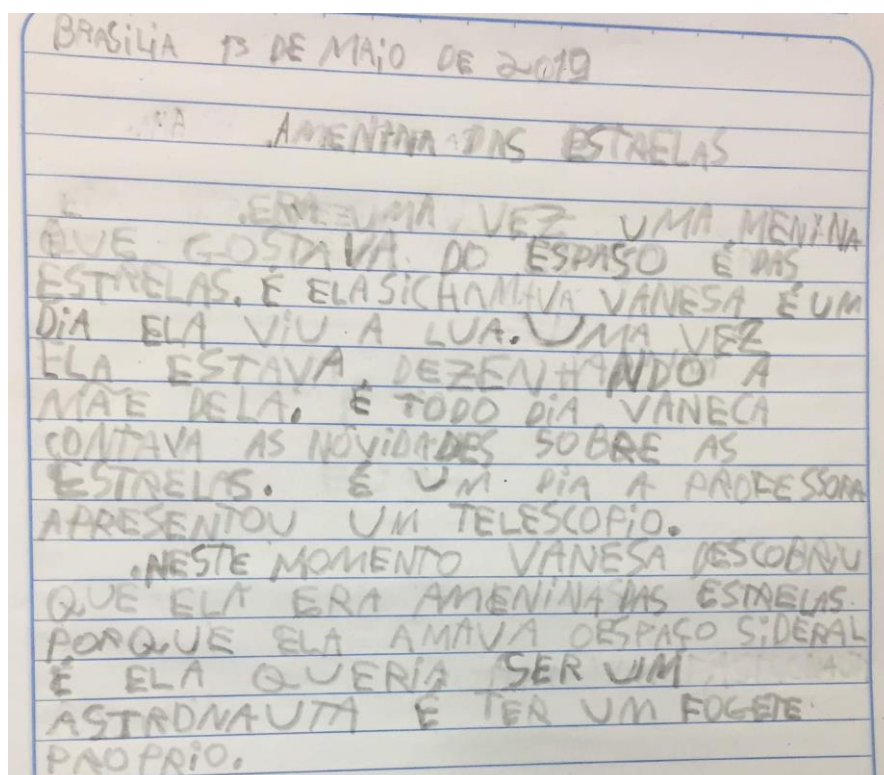 BRASILIA 13 DE MAIO DE 2019
AMENINA DAS ESTRELAS
ERA UMA VEZ UMA MENINA
QUE GOSTAVA DO ESPASO É DAS
ESTRELAS. É ELA SICHAMAVA VANESA É UM
DIA ELA VIU A LUA. UMA VEZ
ELA ESTAVA DEZENHANDO A
MÃE DELA. É TODO DIA VANECA
CONTAVA AS NOVIDADES SOBRE AS
ESTRELAS. É UM DIA A PROFESSORA
APRESENTOU UM TELESCOPIO.
.NESTE MOMENTO VANESA DESCOBRIU
QUE ELA ERA AMENINA DAS ESTRELAS
PORQUE ELA AMAVA OESPAÇO SIDERAL
É ELA QUERIA SER UM
ASTRONAUTA É TER UM FOGETE
PROPRIO.